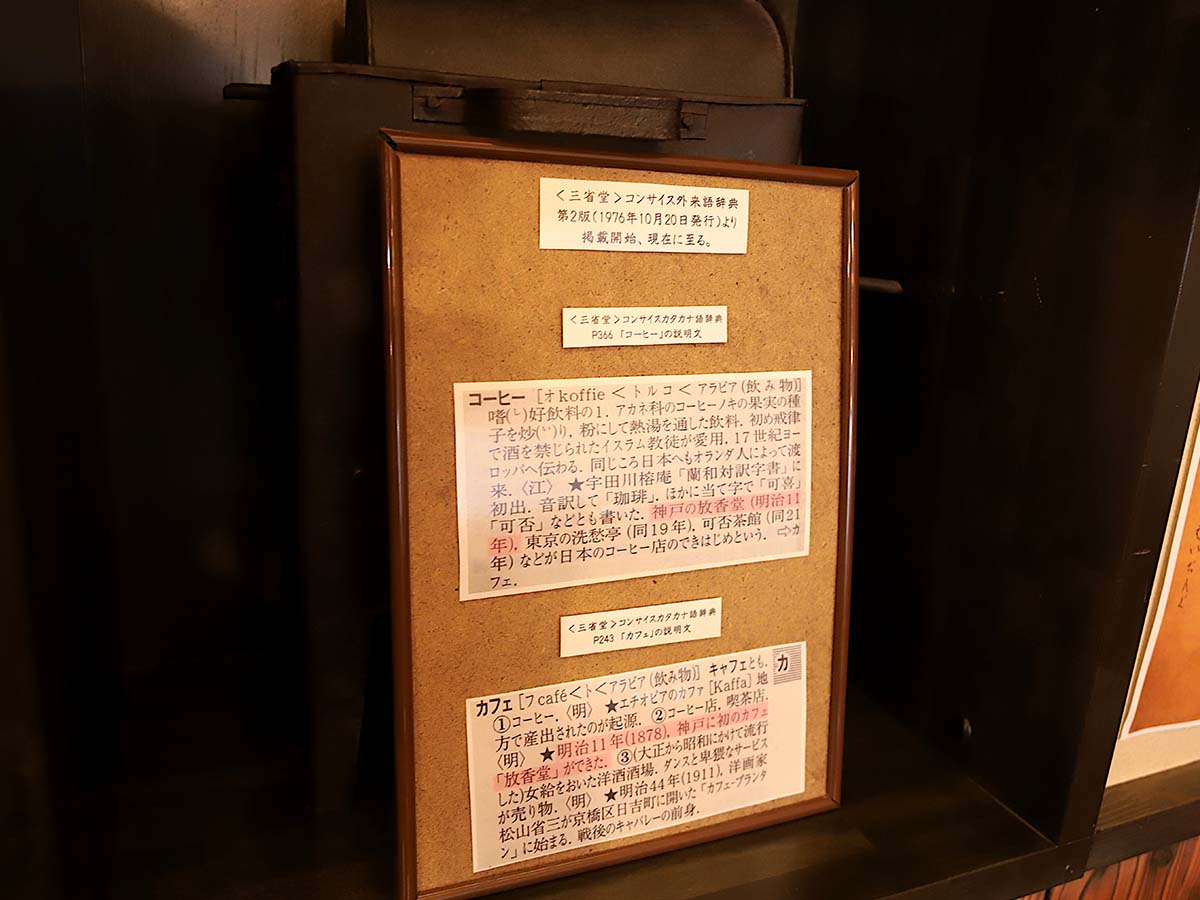 ＜三省堂＞コンサイス外来語辞典
第2版(1976年10月20日発行)より
掲載開始、現在に至る。
＜三省堂＞コンサイスカタカナ語辞典
P366 「コーヒー」の説明文
コーヒー [オ koffie ＜ トルコ ＜ アラビア(飲み物)]
嗜(し)好飲料の1. アカネ科のコーヒーノキの果実の種
子を炒(い)り, 粉にして熱湯を通した飲料. 初め戒律
で酒を禁じられたイスラム教徒が愛用, 17世紀ヨー
ロッパへ伝わる. 同じころ日本へもオランダ人によって渡
来. 〈江〉 ★宇田川榕庵「蘭和対訳字書」に
初出. 音訳して「珈琲」. ほかに当て字で「可喜」
「可否」などとも書いた. 神戸の放香堂 (明治11
年), 東京の洗愁亭 (同19年), 可否茶館 (同21
年) などが日本のコーヒー店のできはじめという. ⇨カ
フェ.
＜三省堂＞コンサイスカタカナ語辞典
P243 「カフェ」の説明文
カ
カフェ [フ café＜ト＜アラビア(飲み物)] キャフェとも.
①コーヒー. 〈明〉 ★エチオピアのカファ [Kaffa] 地
方で産出されたのが起源. ②コーヒー店. 喫茶店.
〈明〉 ★明治11年(1878), 神戸に初のカフェ
「放香堂」ができた. ③(大正から昭和にかけて流行
した)女給をおいた洋酒酒場. ダンスと卑猥なサービス
が売り物. 〈明〉 ★明治44年(1911), 洋画家
松山省三が京橋区日吉町に開いた「カフェ-プランタ
ン」に始まる. 戦後のキャバレーの前身.